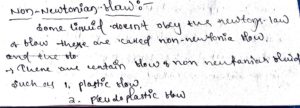 Non-Newtonian-blow:
Some liquid doesn't obey this newton law
& blow these are called non-newtonic flow.
and the do
→ There are contain blow & non newtonian bluid
such as 1, plastic blow
2. pseudoplastic blow